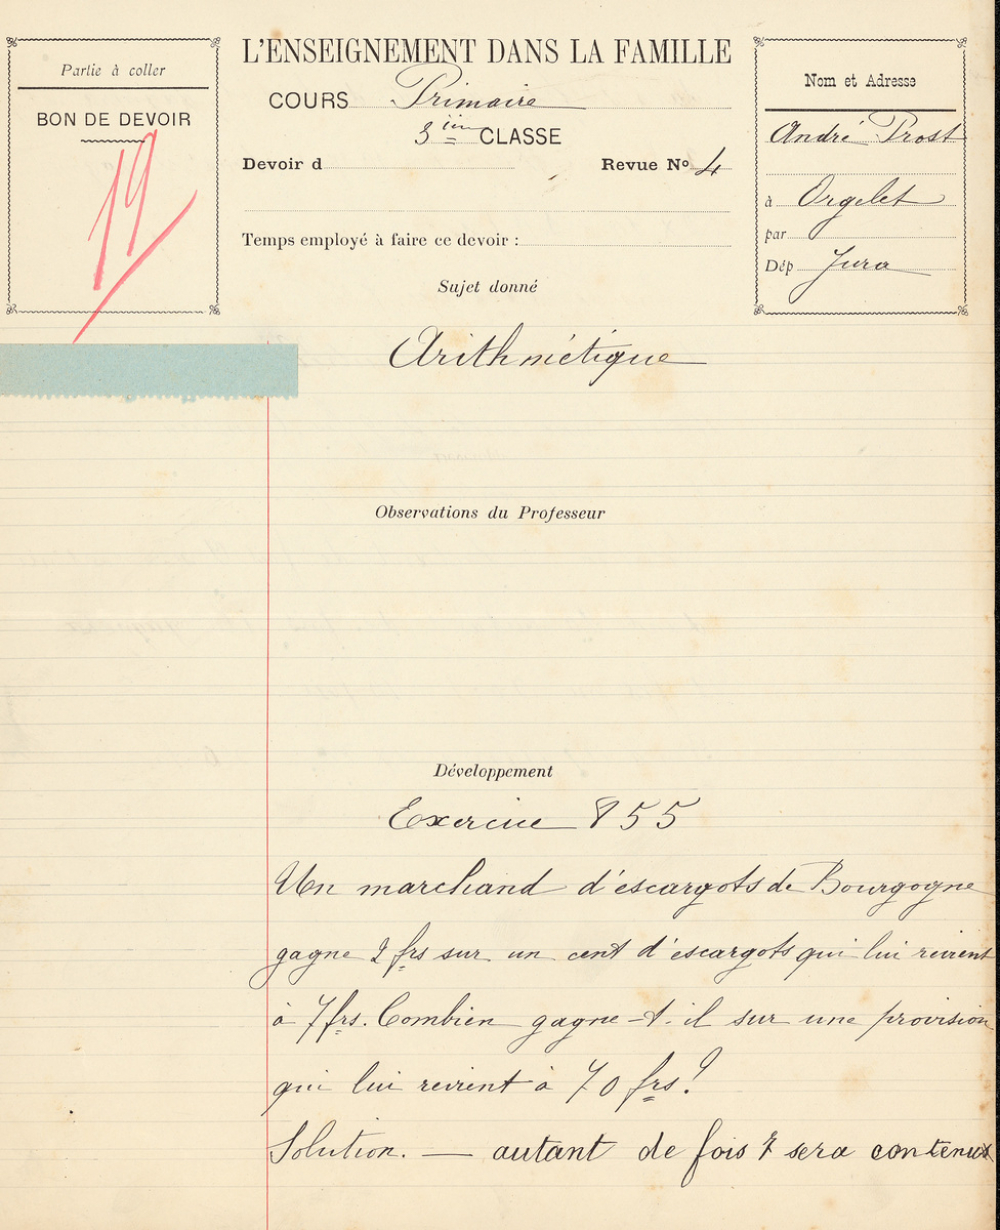 Partie à coller
BON DE DEVOIR
19
L'ENSEIGNEMENT DANS LA FAMILLE
COURS Primaire
3ième CLASSE
Devoir d
Revue No 4
Temps employé à faire ce devoir :
Nom et Adresse
André Prost
à Orgelet
par
Dép Jura
Sujet donné
Arithmétique
Observations du Professeur
Développement
Exercice 855
Un marchand d'escargots de Bourgogne
gagne 2 frs sur un cent d'escargots qui lui revient
à 7 frs. Combien gagne-t-il sur une provision
qui lui revient à 70 frs?
Solution. — autant de fois 7 sera contenu